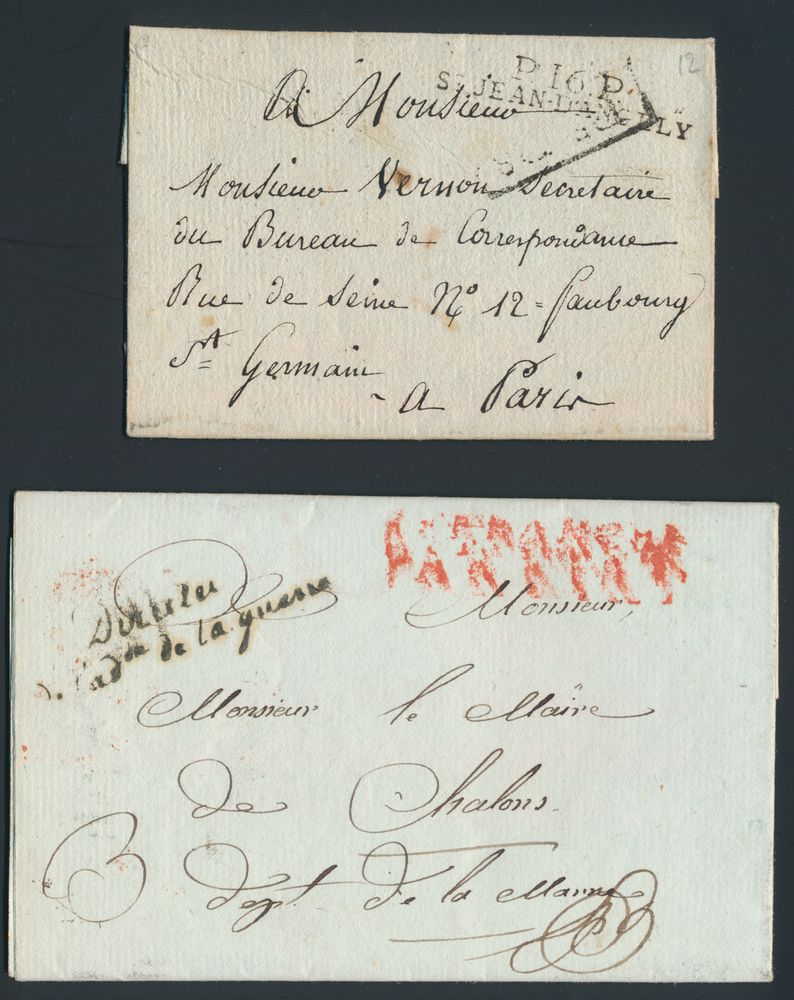 12
P.16.P.
ST JEAN-D'ANGELY
A Monsieur
Monsieur Vernon Secretaire
du Bureau de Correspondance
Rue de Seine No 12 = faubourg
St Germain
a Paris
de la guerre
Monsieur,
Monsieur le Maire
de Chalons
dept. de la Marne